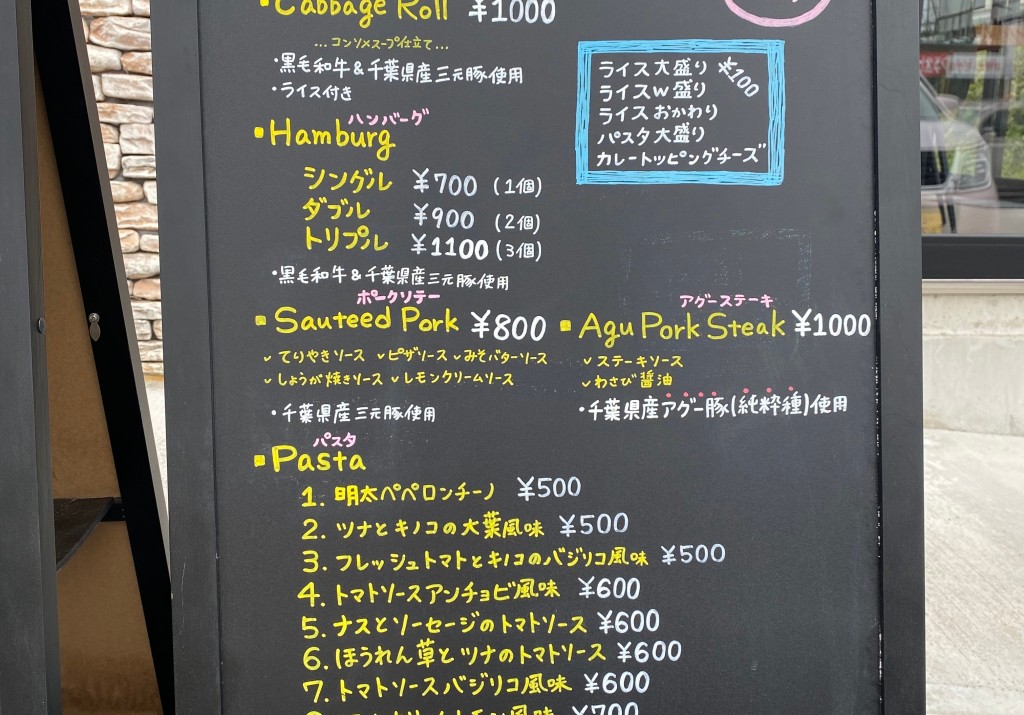 Cabbage Roll ¥1000
...コンソメスープ仕立て...
・黒毛和牛&千葉県産三元豚使用
・ライス付き
ライス大盛り ¥100
ライスW盛り
ライスおかわり
パスタ大盛り
カレートッピングチーズ
ハンバーグ
Hamburg
シングル ¥700 (1個)
ダブル ¥900 (2個)
トリプル ¥1100 (3個)
・黒毛和牛&千葉県産三元豚使用
ポークソテー
Sauteed Pork ¥800
✓てりやきソース ✓ピザソース ✓みそバターソース
✓しょうが焼きソース ✓レモンクリームソース
・千葉県産三元豚使用
アグーステーキ
Agu Pork Steak ¥1000
✓ステーキソース
✓わさび醤油
・千葉県産アグー豚(純粋種)使用
パスタ
Pasta
1. 明太ペペロンチーノ ¥500
2. ツナとキノコの大葉風味 ¥500
3. フレッシュトマトとキノコのバジリコ風味 ¥500
4. トマトソースアンチョビ風味 ¥600
5. ナスとソーセージのトマトソース ¥600
6. ほうれん草とツナのトマトソース ¥600
7. トマトソースバジリコ風味 ¥600
¥700